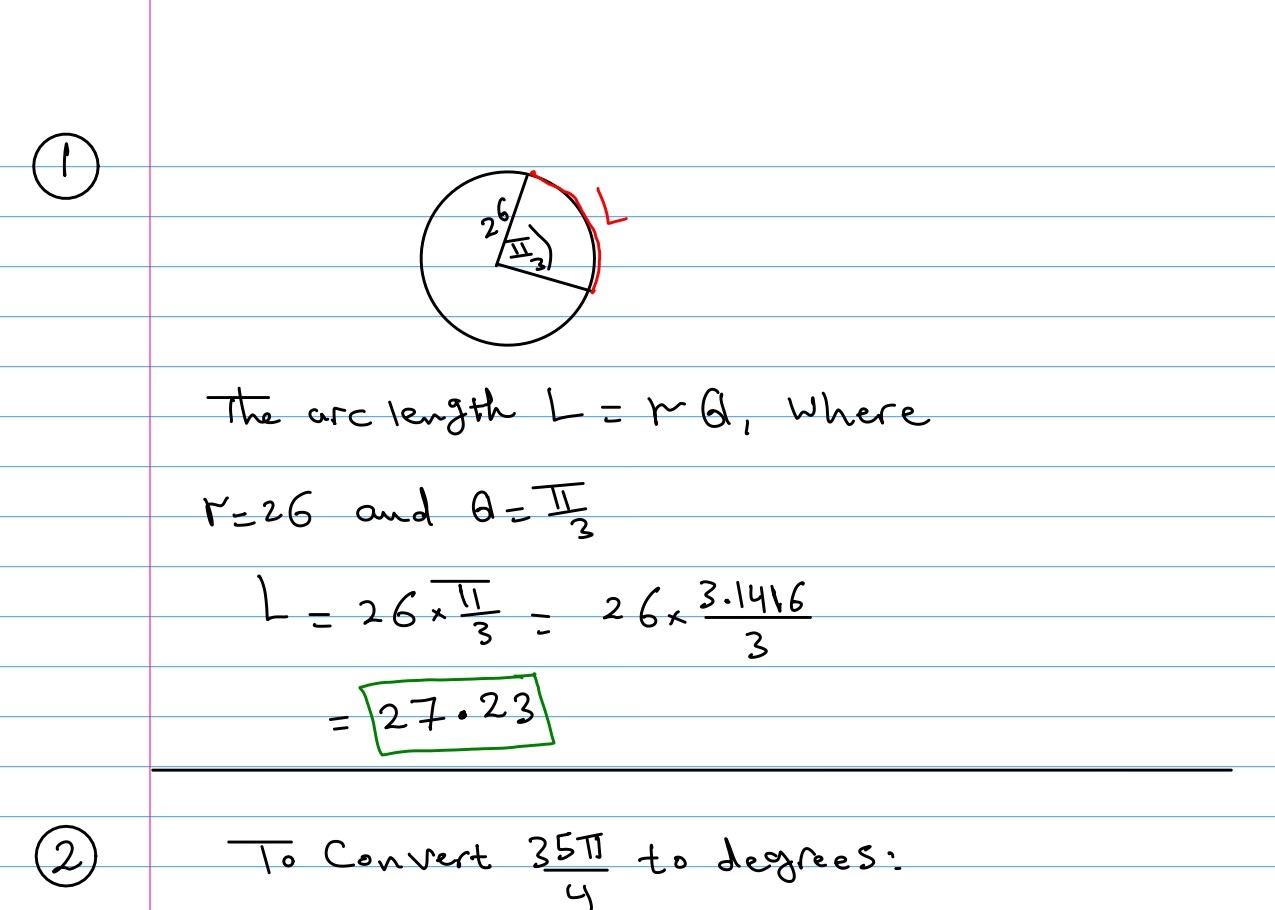 1
26
π/3
L
The arc length L = rθ, where
r=26 and θ=π/3
L = 26×π/3 = 26×3.1416/3
= 27.23
2
To Convert 35π/4 to degrees: